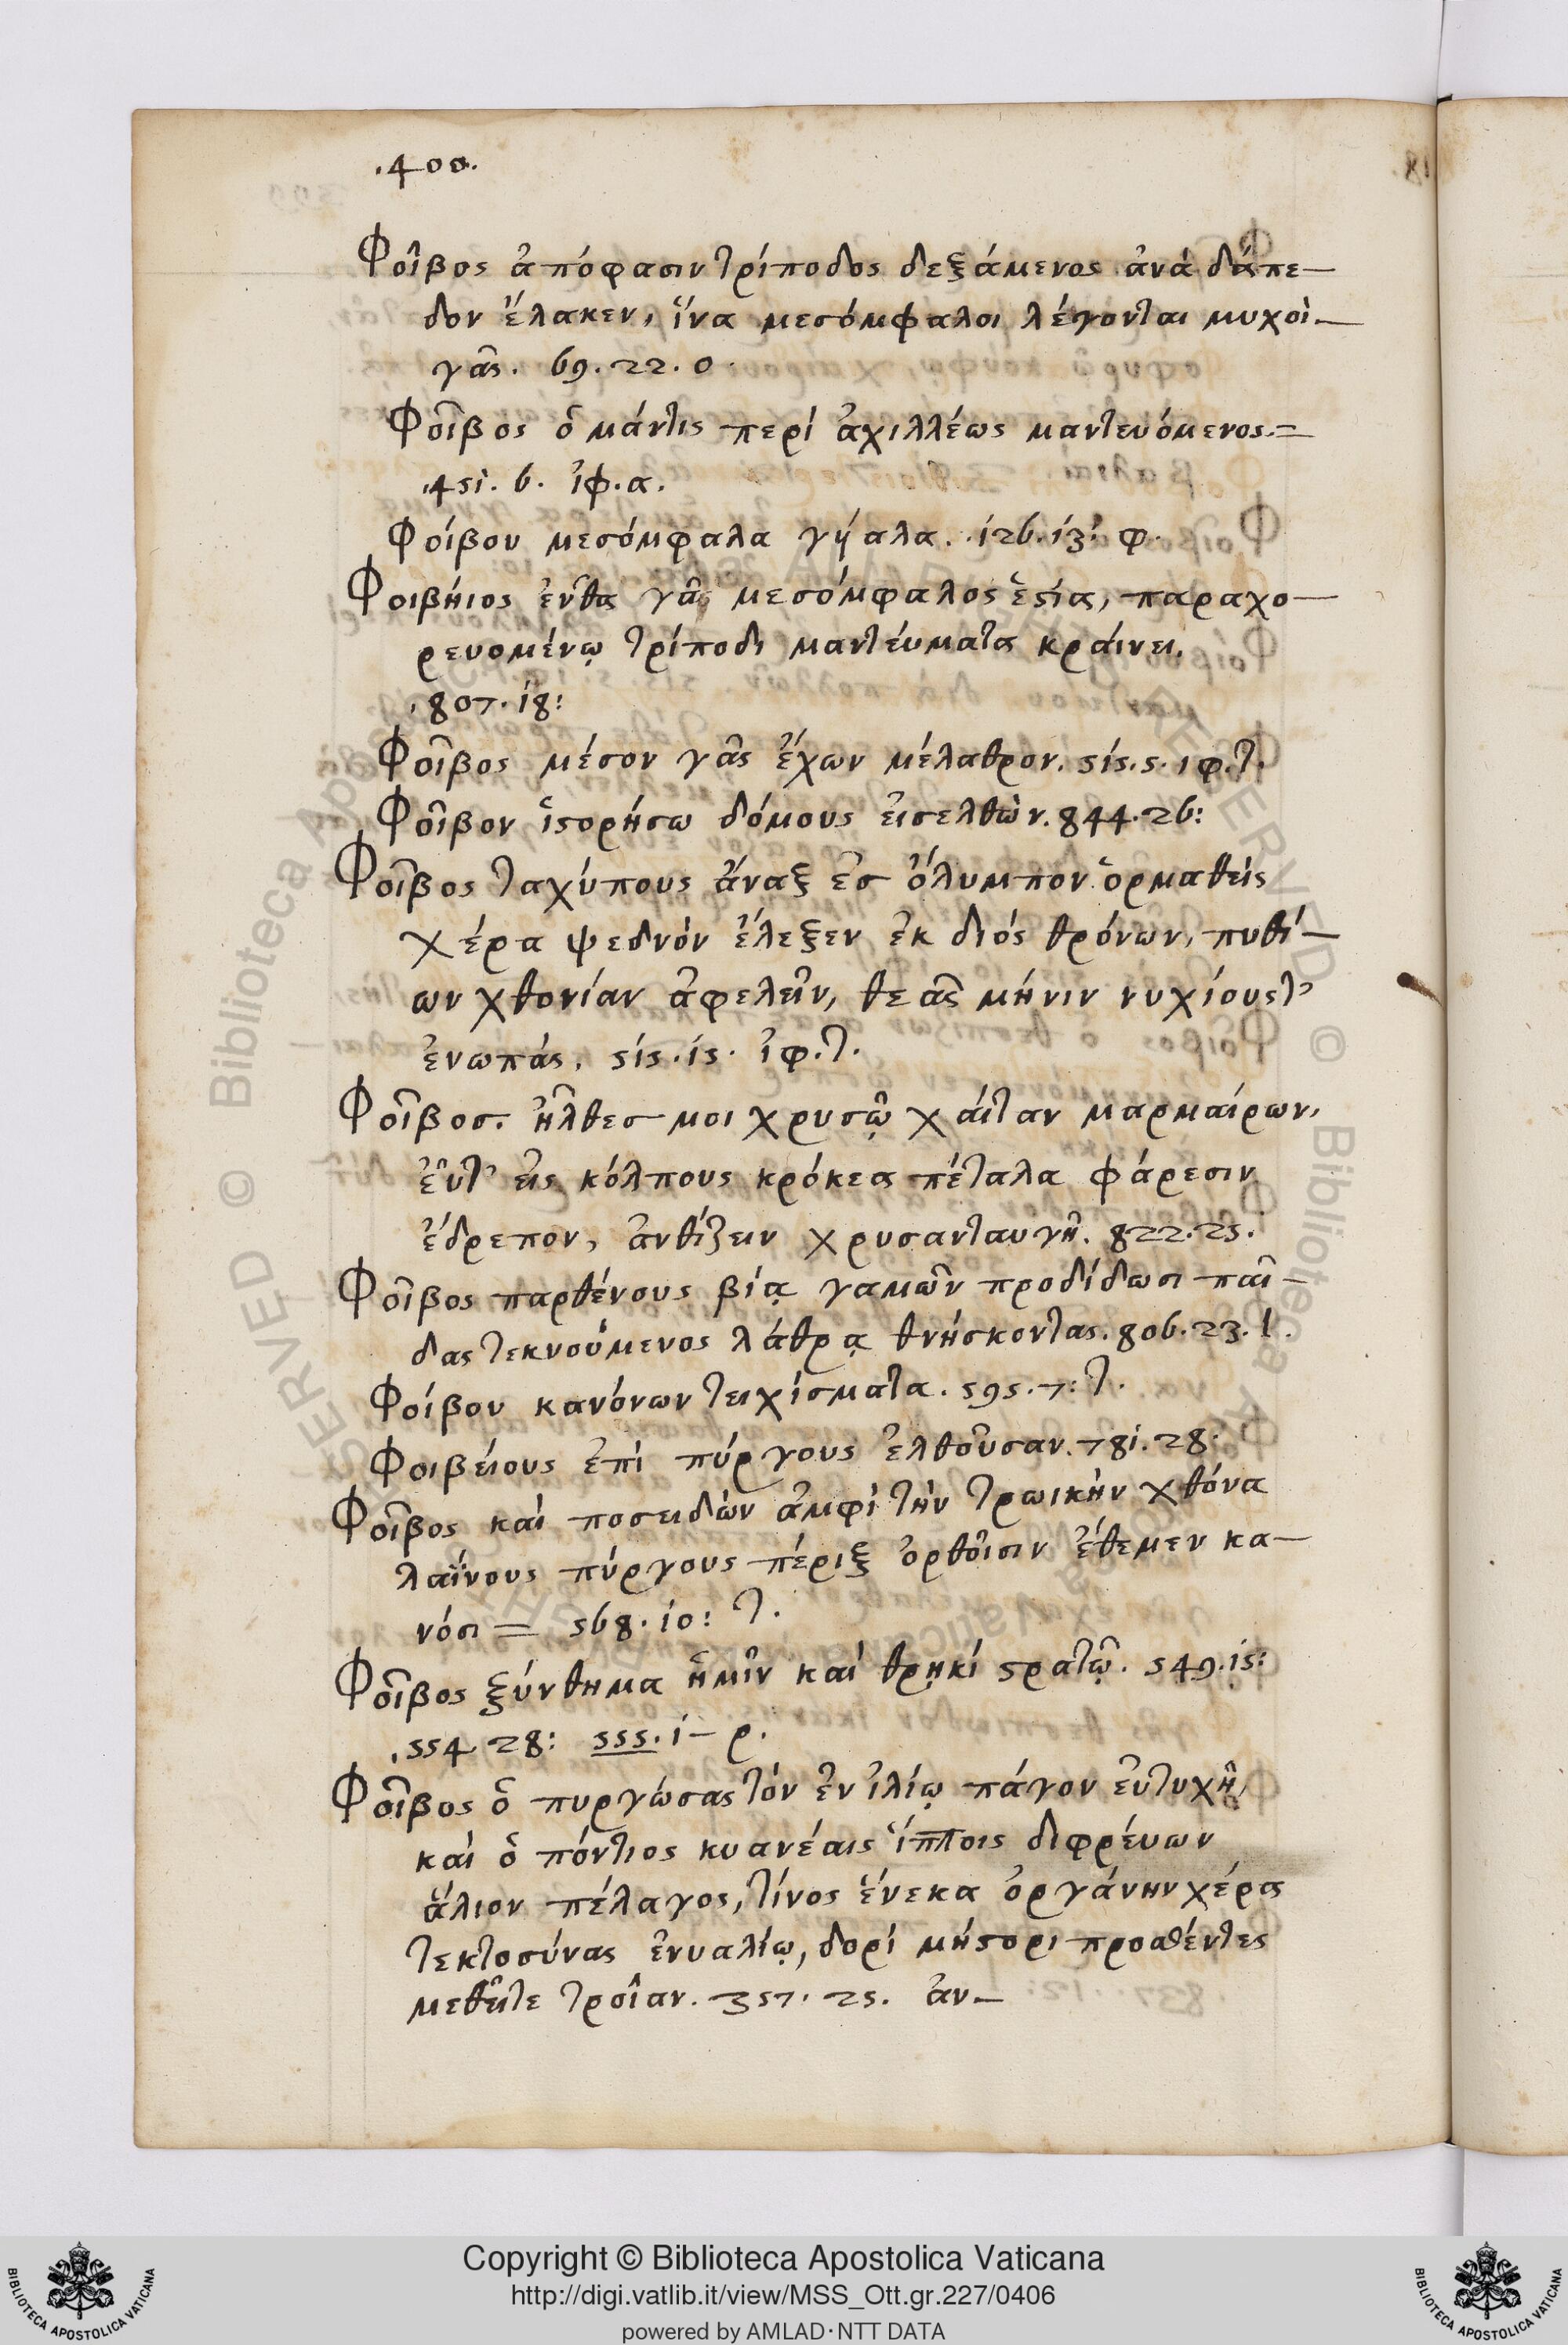 .400.
Φοῖβος ἀπόφασιν τρίποδος δεξάμενος ἀνὰ δάπε-
δον ἔλακεν, ἵνα μεσόμφαλοι λέγονται μυχοὶ -
γᾶς. 69.22. ο.
Φοῖβος ὁ μάντις περὶ ἀχιλλέως μαντευόμενος. =
.451. 6. ἰφ. α.
Φοίβου μεσόμφαλα γύαλα. .126.13: φ.
Φοιβήιος ἔνθα γᾶς μεσόμφαλος ἑστίας, παραχο-
ρευομένῳ τρίποδι μαντεύματα κράινει.
.807. 18:
Φοῖβος μέσον γᾶς ἔχων μέλαθρον. 515. 5. ιφ. τ.
Φοῖβον ἱστορήσω δόμους εἰσελθὼν. 844. 26:
Φοῖβος ταχύπους ἄναξ ἐσ ὄλυμπον ὁρμαθεὶς
χέρα ψεδνὸν ἔλεξεν ἐκ διὸς θρόνων, πυθί-
ων χθονίαν ἀφελεῖν, θεᾶς μῆνιν νυχίους τ'
ἐνωπάς. 515. 15. ἰφ. τ.
Φοῖβος. ἦλθες μοι χρυσῷ χάιταν μαρμαίρων,
εὖτ' εἰς κόλπους κρόκεα πέταλα φάρεσιν
ἔδρεπον, ἀνθίζειν χρυσανταυγῆ. 822. 25.
Φοῖβος παρθένους βίᾳ γαμῶν προδίδωσι παῖ-
δας τεκνούμενος λάθρᾳ θνήσκοντας. 806. 23. ι.
Φοίβου κανόνων τειχίσματα. 595. 7: τ.
Φοιβείους ἐπὶ πύργους ἐλθοῦσαν. 781. 28.
Φοῖβος καὶ ποσειδῶν ἀμφὶ τὴν τρωικὴν χθόνα
λαΐνους πύργους πέριξ ὀρθοῖσιν ἔθεμεν κα-
νόσι = 568. 10: τ.
Φοῖβος ξύνθημα ἡμῖν καὶ θρηκὶ στρατῷ. 549. 15:
.554 28: 555. 1 - ρ.
Φοῖβος ὁ πυργώσας τὸν ἐν ἰλίῳ πάγον εὐτυχῆ,
καὶ ὁ πόντιος κυανέαις ἵπποις διφρέυων
ἅλιον πέλαγος, τίνος ἕνεκα ὀργάνην χέρα
τεκτοσύνας ἐνυαλίῳ, δορὶ μήστορι προσθέντες
μεθεῖτε τροΐαν. 357. 25. ἀν -
Copyright © Biblioteca Apostolica Vaticana
http://digi.vatlib.it/view/MSS_Ott.gr.227/0406
powered by AMLAD·NTT DATA